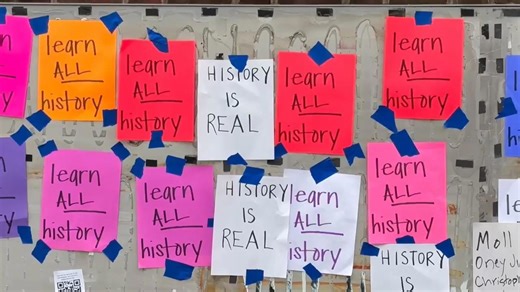 learn
ALL
history
learn
ALL
history
HISTORY
IS
REAL
learn
ALL
history
learn
ALL
history
learn
ALL
history
learn
ALL
history
HISTORY
IS
REAL
learn
ALL
history
learn
ALL
history
HISTORY
IS
Moll
Oney Ju
Christoph